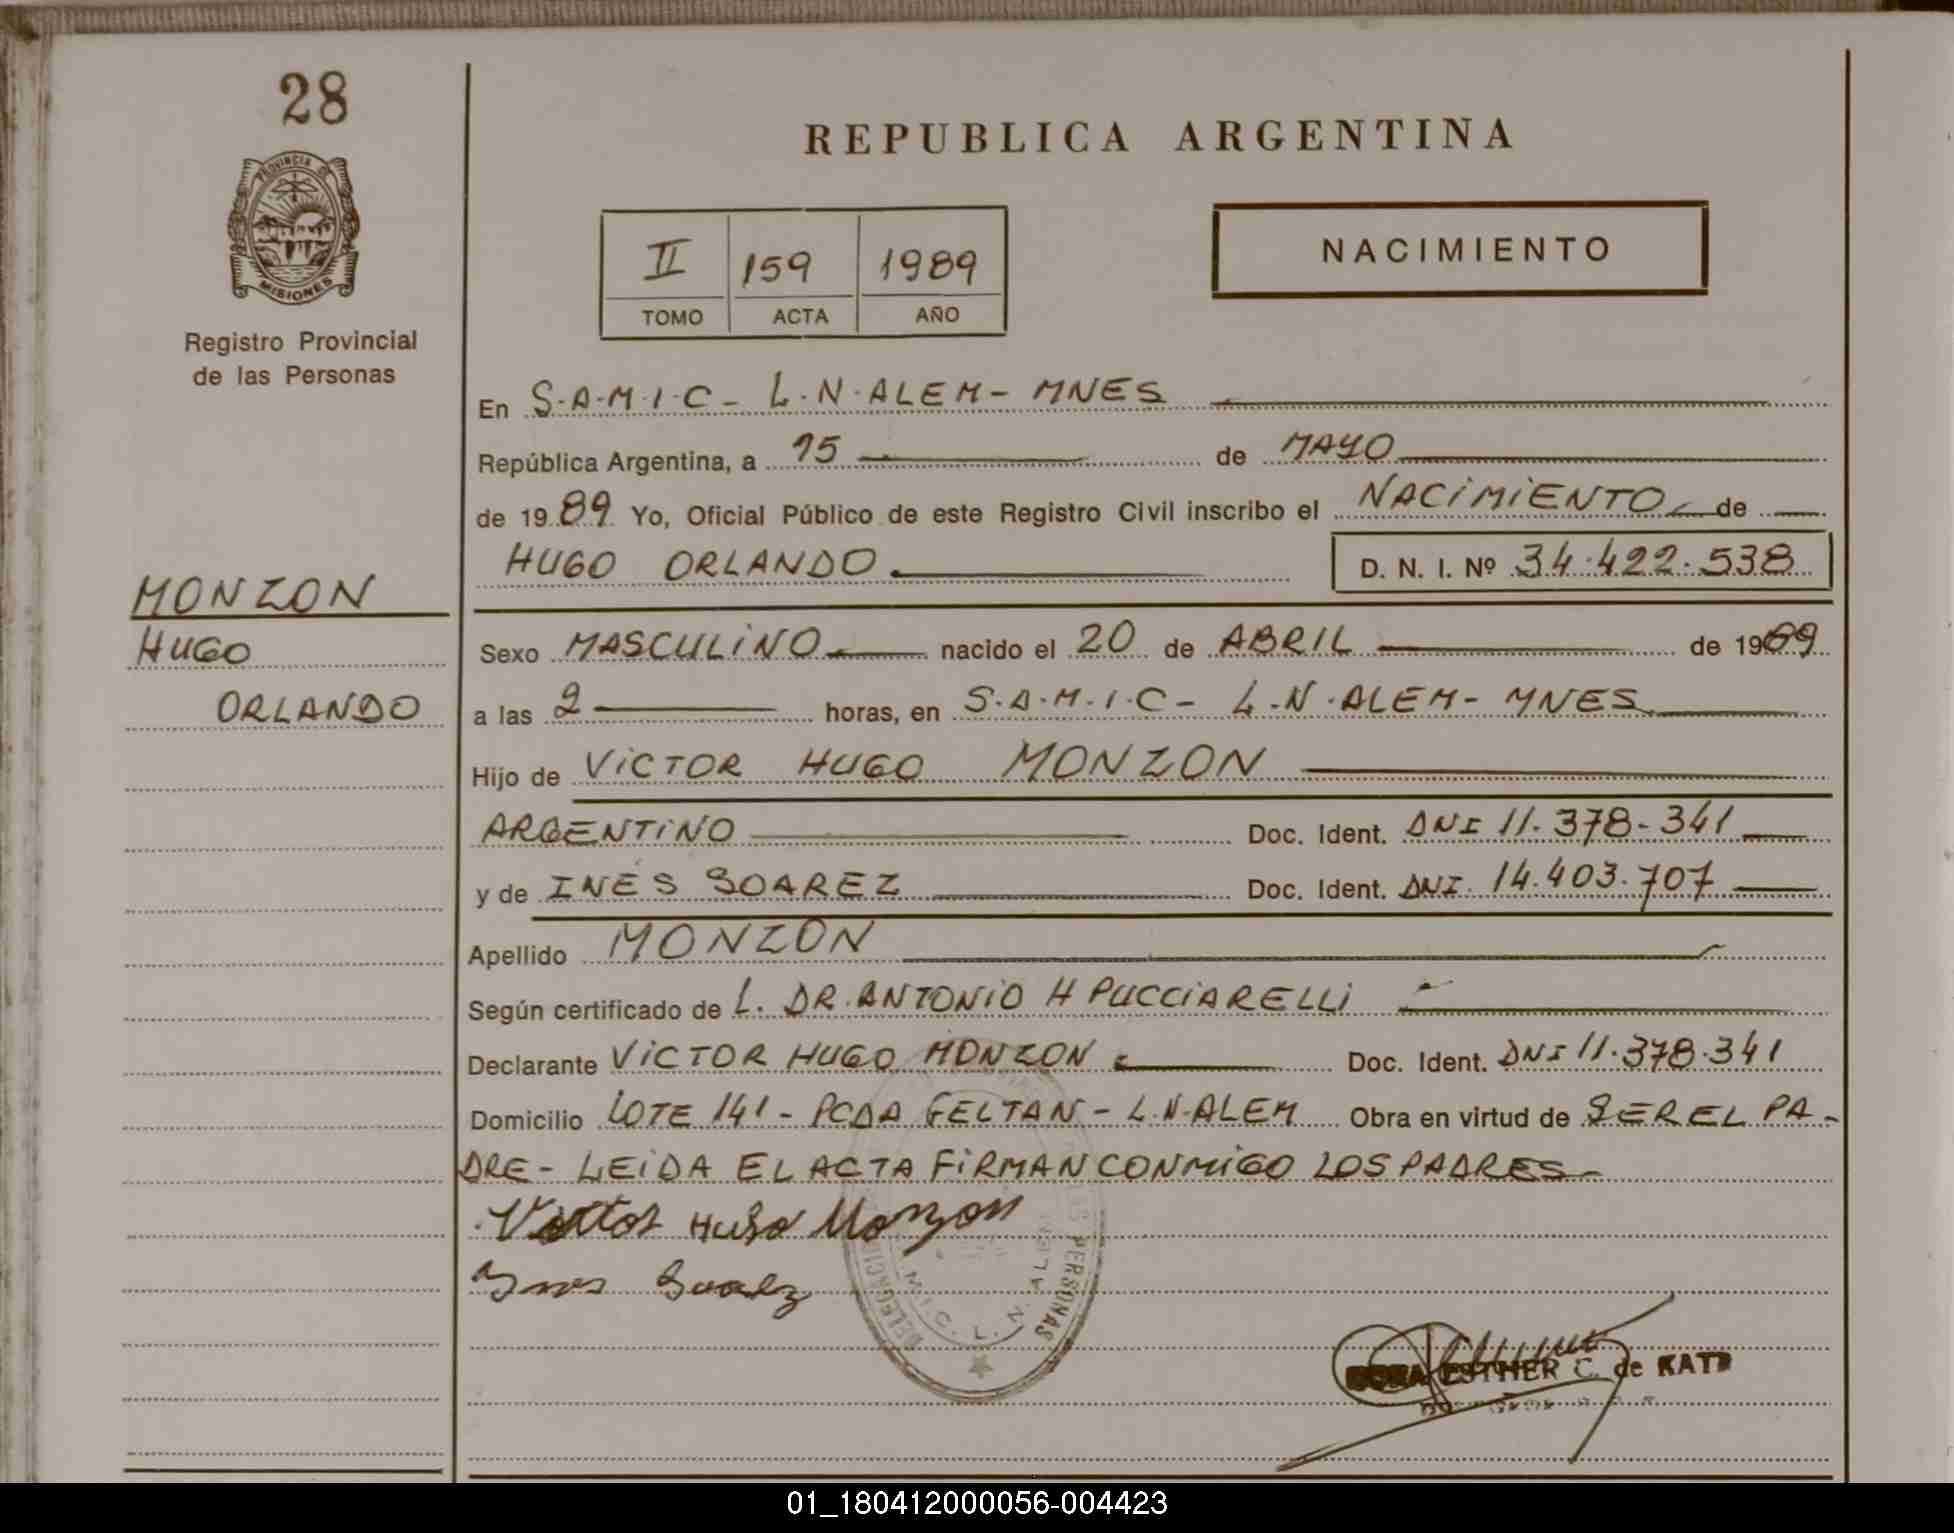 28
PROVINCIA DE
MISIONES
Registro Provincial
de las Personas
MONZON
HUGO
ORLANDO
REPUBLICA ARGENTINA
II 159 1989
TOMO ACTA AÑO
NACIMIENTO
En S.A.M.I.C - L.N.ALEM - MNES
República Argentina, a 15 de MAYO
de 1989 Yo, Oficial Público de este Registro Civil inscribo el NACIMIENTO de
HUGO ORLANDO D. N. I. Nº 34.422.538
Sexo MASCULINO nacido el 20 de ABRIL de 1989
a las 2 horas, en S.A.M.I.C - L.N.ALEM - MNES
Hijo de VICTOR HUGO MONZON
ARGENTINO Doc. Ident. DNI 11.378.341
y de INÉS SOAREZ Doc. Ident. DNI. 14.403.707
Apellido MONZON
Según certificado de L. DR. ANTONIO H PUCCIARELLI
Declarante VICTOR HUGO MONZON Doc. Ident. DNI 11.378.341
Domicilio LOTE 141 - PCDA GELTAN - L.N.ALEM Obra en virtud de SER EL PA-
DRE - LEIDA EL ACTA FIRMAN CONMIGO LOS PADRES
Victor Hugo Monzon
Ines Suarez
M.I.C. L. N. ALEM
PERSONAS
ESTHER C. de KATZ
01_180412000056-004423